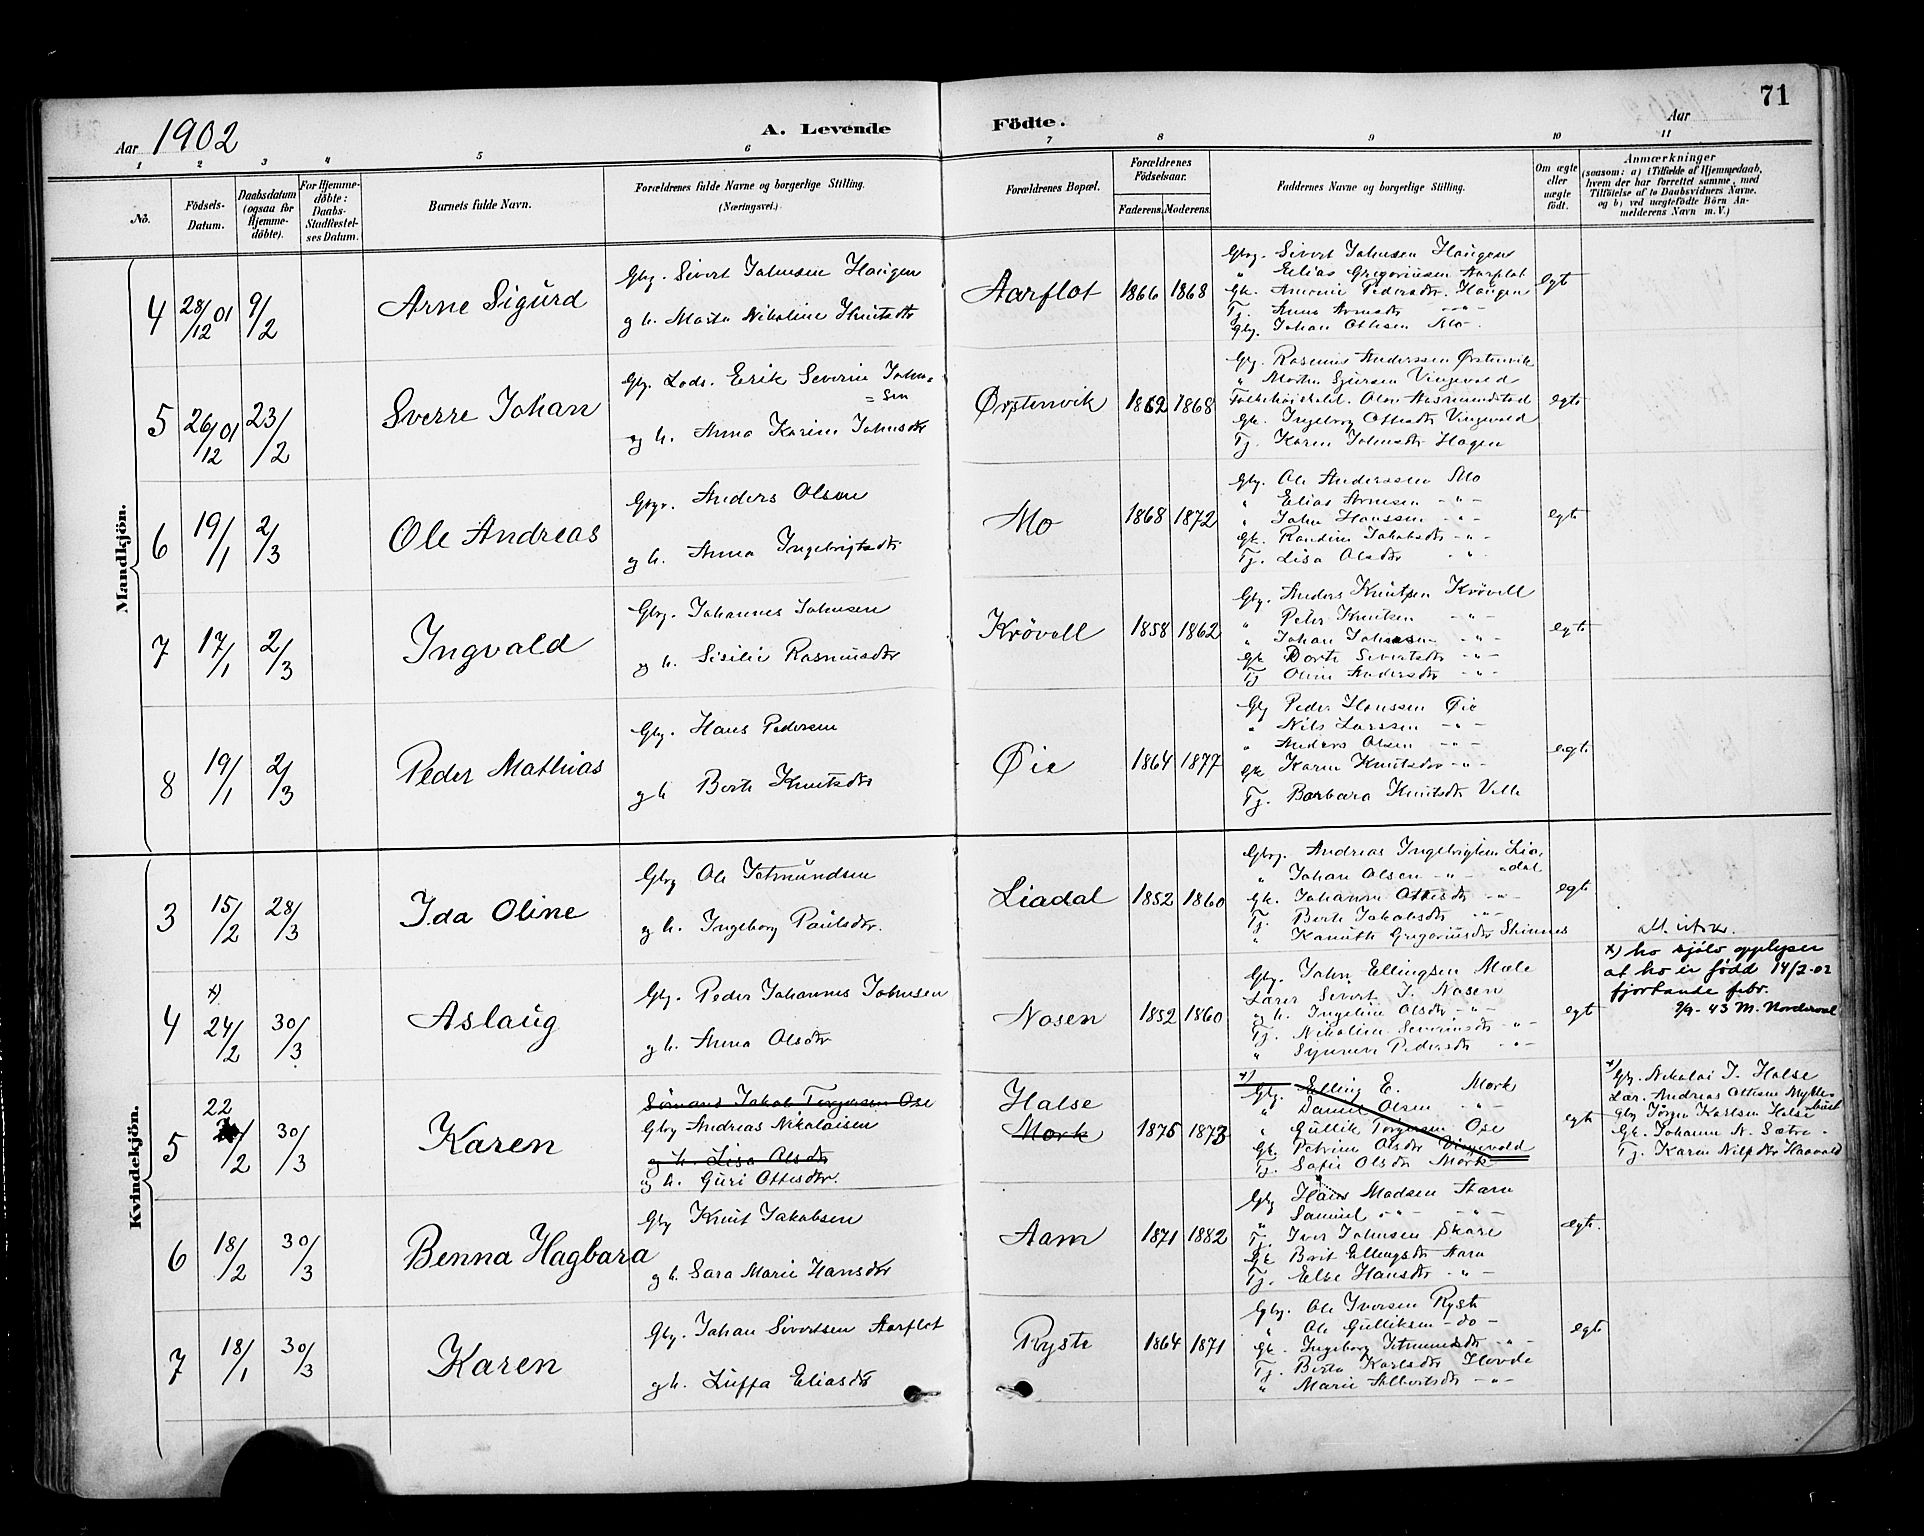 71
Aar 1902
A. Levende Födte.
Aar
1 2 3 4 5 6 7 8 9 10 11
No.
Födsels-Datum.
Daabsdatum (ogsaa for Hjemme-döbte).
For Hjemme-döbte: Daabs-Stadfæstel-ses Datum.
Barnets fulde Navn.
Forældrenes fulde Navne og borgerlige Stilling.
(Næringsvei.)
Forældrenes Bopæl.
Forældrenes Födselsaar.
Faderens. Moderens.
Faddernes Navne og borgerlige Stilling.
Om ægte eller uægte födt.
Anmærkninger
(saasom: a) i Tilfælde af Hjemmedaab,
hvem der har forrettet samme, med
Tilföielse af to Daabsvidners Navne,
og b) ved uægtefödte Börn An-
melderens Navn m. V.)
Mandkjön.
4 28/12 01 9/2 Arne Sigurd
Gbr. Sivert Johnsen Haugen
g h. Marta Nikoline Knutsdtr
Aarflot 1866 1868
Gbr. Sivert Johnsen Haugen
" Elias Gregoriusen Aarflot
Gk. Amerine Pedersdtr. Haugen
Tj. Anna Arnesdtr -"-
Gbr. Johan Ottesen Mo
egt
5 26/12 01 23/2 Sverre Johan
Gbr. Lods. Erik Severin John=
=sen
og h. Anna Karine Johnsdtr
Ørstenvik 1862 1868
Gbr. Rasmus Anderssen Ørstenvik
" Martin Sjursen Vingevold
Ole Aasmundstad
Gk. Ingeborg Ottesdtr Vingevold
Tj. Karen Johnsdtr Hagen
egte
6 19/1 2/3 Ole Andreas
Gbr. Anders Olsen
og h. Anna Ingebrigtsdtr
Mo 1868 1872
Gbr. Ole Anderssen Mo
" Elias Arnesen -"-
" John Hanssen -"-
Gk. Randine Jakobsdtr -"-
Tj. Lisa Olsdtr -"-
egte
7 17/1 2/3 Ingvald
Gbr. Johannes Johnsen
og h. Sisilie Rasmusdtr
Krövell 1858 1862
Gbr. Anders Knutsen Krövell
" Peter Knutsen -"-
" Johan Johnsen -"-
Gk Dorte Sivertsdtr -"-
Tj Oline Andersdtr -"-
egte
8 19/1 2/3 Peder Mathias
Gbr. Hans Pedersen
g h Berte Knutsdtr
Øie 1864 1877
Gbr Peder Hanssen Øie
" Nils Larssen -"-
" Anders Olsen -"-
Gk Karen Knutsdtr -"-
Tj. Barbara Knutsdtr Velle
egte
Kvindekjön.
3 15/2 28/3 Ida Oline
Gbr Ole Jetmundsen
og h. Ingeborg Paulsdtr.
Liadal 1852 1860
Gbr. Andreas Ingebrigtsen Lia=
dal
" Johan Olsen -"-
Gk. Johanne Ottesdtr -"-
Tj. Berte Jakobsdtr -"-
" Kanutte Gregoriusdtr
egte
4 x) 24/2 30/3 Aslaug
Gbr. Peder Johannes Johnsen
g h. Anna Olsdtr
Nosen 1852 1860
Gbr. John Ellingsen Mæle
Lærer Sivert J. Nosen
og h. Ingeline Olsdtr -"-
Tj. Nikoline Severinsdtr -"-
" Synneve Pedersdtr -"-
egt
x) ho sjølv opplyser
at ho er fødd 14/2-02
fjortande febr.
9/9-43 M. Norderval
5 22/2 30/3 Karen
Sörmand Jakob Torgersen Ose
Gbr Andreas Nikolaisen
og h. Lisa Olsdtr
og h. Guri Ottesdtr.
Halse
Mork
1875 1873
x) Gbr. Elling E. Mork
" Daniel Olsen -"-
" Gullik Torgersen Ose
Gk. Petrine Olsdtr Vingevold
Tj. Sofie Olsdtr Mork
egte
x) Gbr. Nikolai J. Halse
Lær. Andreas Ottesen Mykle=
bust
Gbr Jörgen Karlsen Halse
Gk. Johanne N. Sætre
Tj. Karen Nilsdtr Haavold
6 18/2 30/3 Benna Hagbara
Gbr Knut Jakobsen
g h. Sara Marie Hansdtr
Aam 1871 1882
Gbr Hans Madsen Aam
" Samuel -"- -"-
Tj. Iver Johnsen Skare
Gk Brit Ellingsdtr Aam
Tj. Else Hansdtr -"-
egte.
7 18/1 30/3 Karen
Gbr. Johan Sivertsen Aarflot
g h. Luffa Eliasdtr
Ryste 1864 1871
Gbr. Ole Iversen Ryste
" Ole Gulliksen -do-
Gk. Ingeborg Jetmundsdtr -"-
Tj. Berte Karlsdtr Hovde
" Marie Albertsdtr -"-
egte